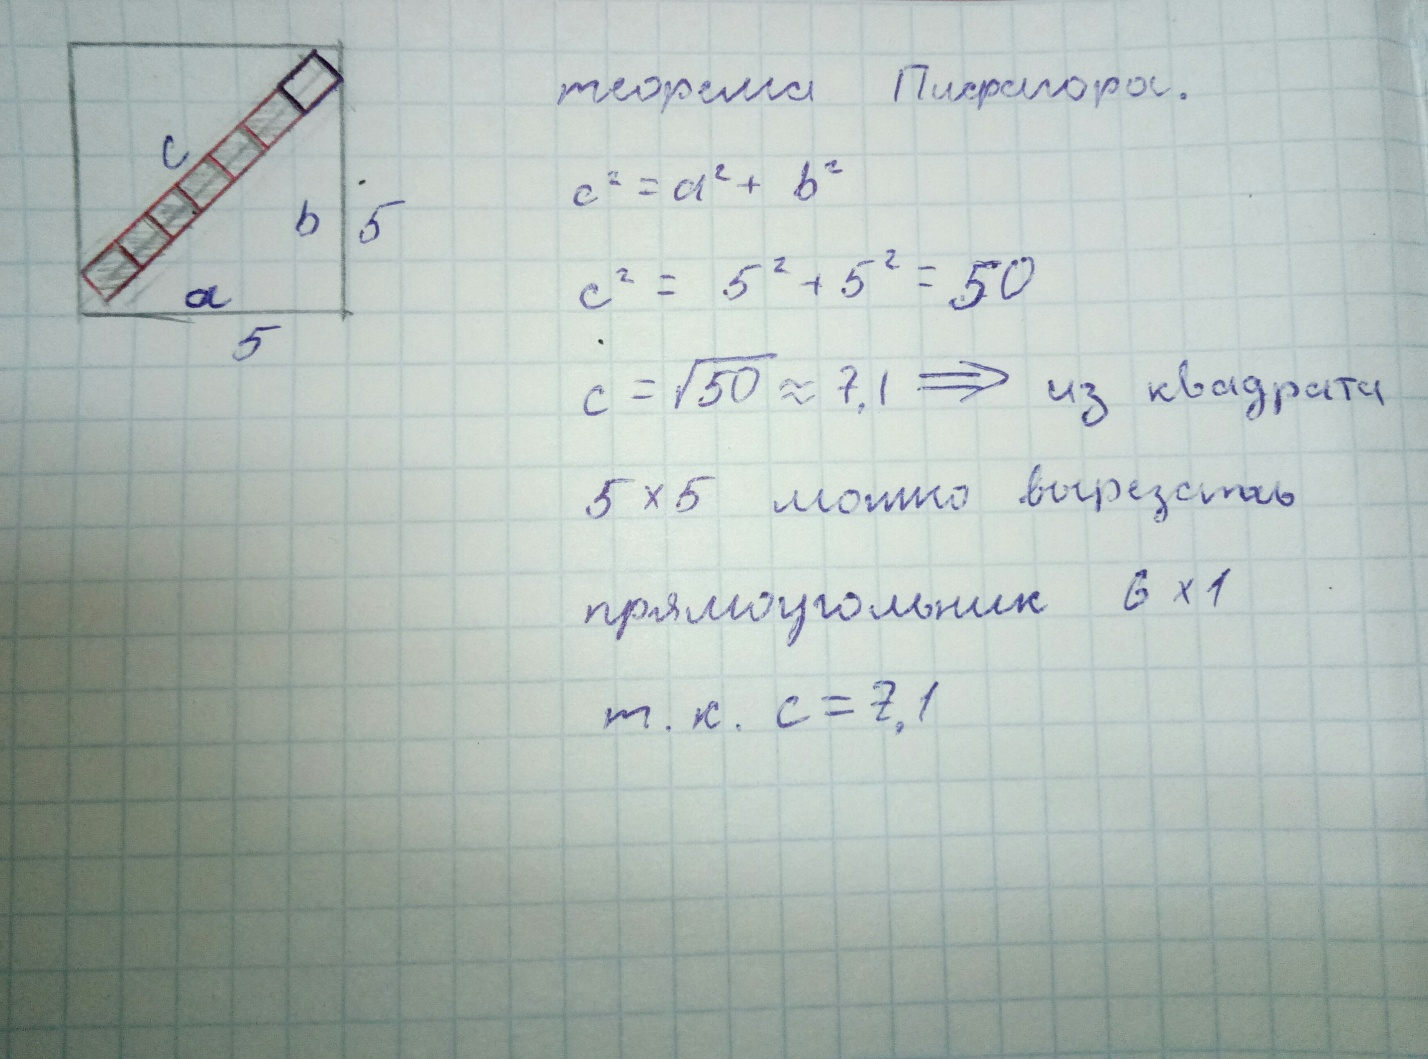 теорема Пифагора.
c² = a² + b²
c² = 5² + 5² = 50
c = √50 ≈ 7,1 ⟹ из квадрата
5 × 5 можно вырезать
прямоугольник 6 × 1
т. к. c = 7,1
c
b 5
a
5